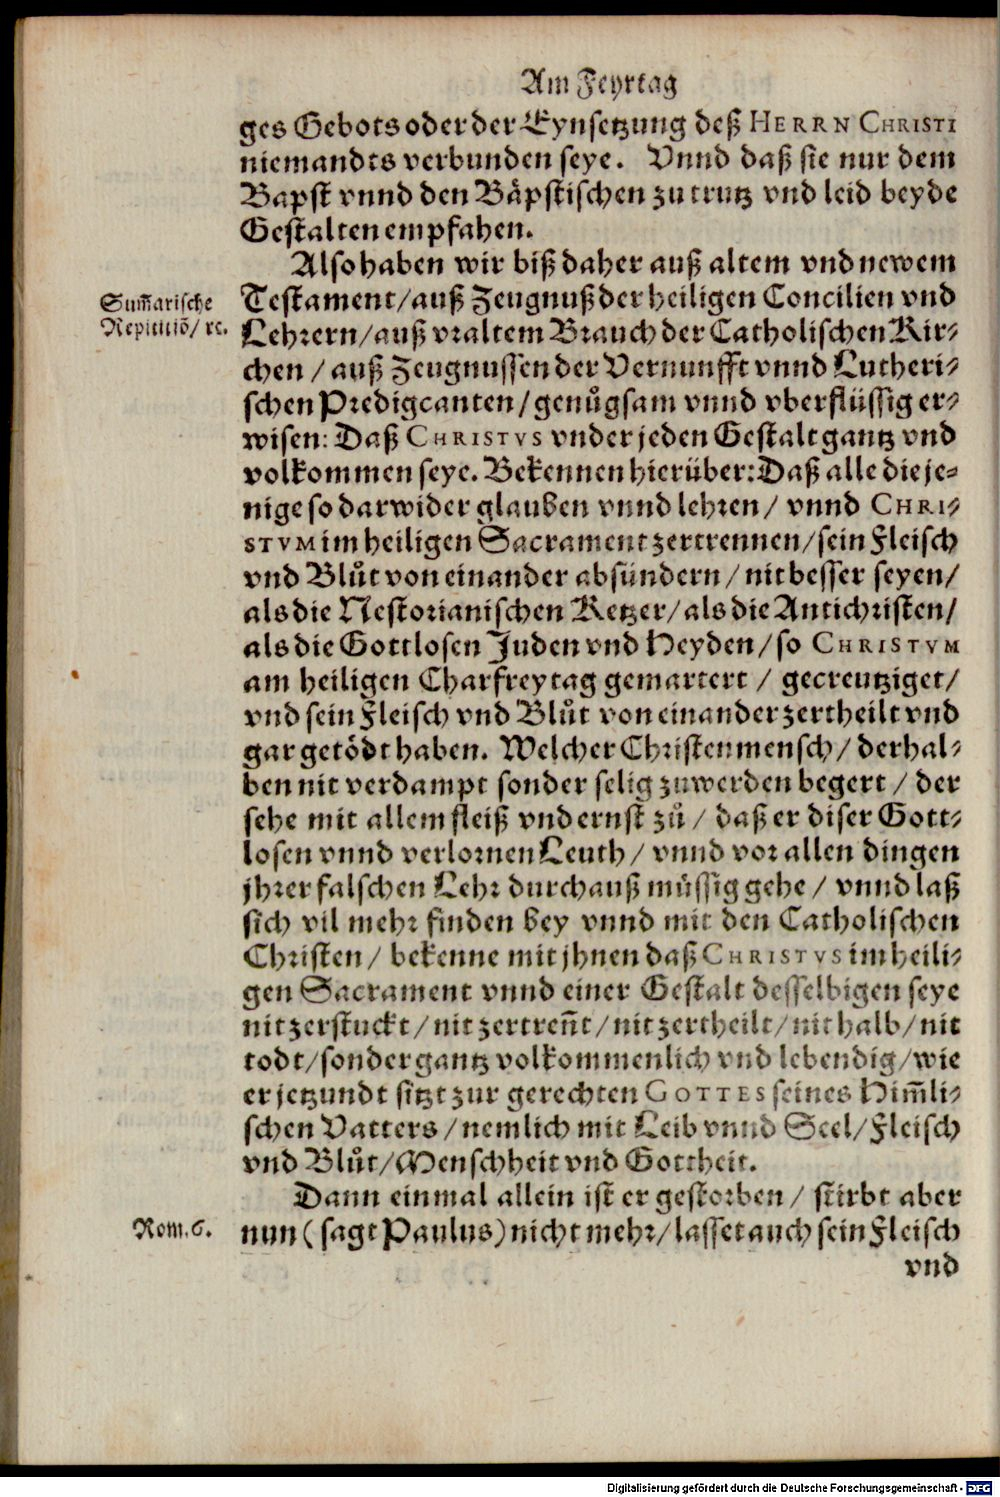 Am Feyrtag
ges Gebots oder der Eynsetzung deß HERRN CHRISTI
niemandts verbunden seye. Vnnd daß sie nur dem
Bapst vnnd den Bäpstischen zu trutz vnd leid beyde
Gestalten empfahen.
Also haben wir biß daher auß altem vnd newem
Summ̄arische
Repititiō/ ꝛc.
Testament/ auß Zeugnuß der heiligen Concilien vnd
Lehrern/ auß vraltem Brauch der Catholischen Kir-
chen / auß Zeugnussen der Vernunfft vnnd Lutheri-
schen Predigcanten/ genůgsam vnnd vberflüssig er-
wisen: Daß CHRISTVS vnder jeden Gestalt gantz vnd
volkommen seye. Bekennen hierüber: Daß alle die je-
nige so darwider glauben vnnd lehren/ vnnd CHRI-
STVM im heiligen Sacrament zertrennen/ sein Fleisch
vnd Blůt von einander absündern / nit besser seyen/
als die Nestorianischen Ketzer/ als die Antichristen/
als die Gottlosen Juden vnd Heyden/ so CHRISTVM
am heiligen Charfreytag gemartert / gecreutziget/
vnd sein Fleisch vnd Blůt von einander zertheilt vnd
gar getödt haben. Welcher Christenmensch/ derhal-
ben nit verdampt sonder selig zuwerden begert / der
sehe mit allem fleiß vnd ernst zů / daß er diser Gott-
losen vnnd verlornen Leuth/ vnnd vor allen dingen
jhrer falschen Lehr durchauß müssig gehe / vnnd laß
sich vil mehr finden bey vnnd mit den Catholischen
Christen/ bekenne mit jhnen daß CHRISTVS im heili-
gen Sacrament vnnd einer Gestalt desselbigen seye
nit zerstuckt/ nit zertren̄t/ nit zertheilt/ nit halb/ nit
todt/ sonder gantz volkommenlich vnd lebendig/ wie
er jetzundt sitzt zur gerechten GOTTES seines Him̄li-
schen Vatters/ nemlich mit Leib vnnd Seel/ Fleisch
vnd Blůt/ Menschheit vnd Gottheit.
Dann einmal allein ist er gestorben / stirbt aber
Rom. 6.
nun ( sagt Paulus) nicht mehr/ lasset auch sein Fleisch
vnd
Digitalisierung gefördert durch die Deutsche Forschungsgemeinschaft - DFG